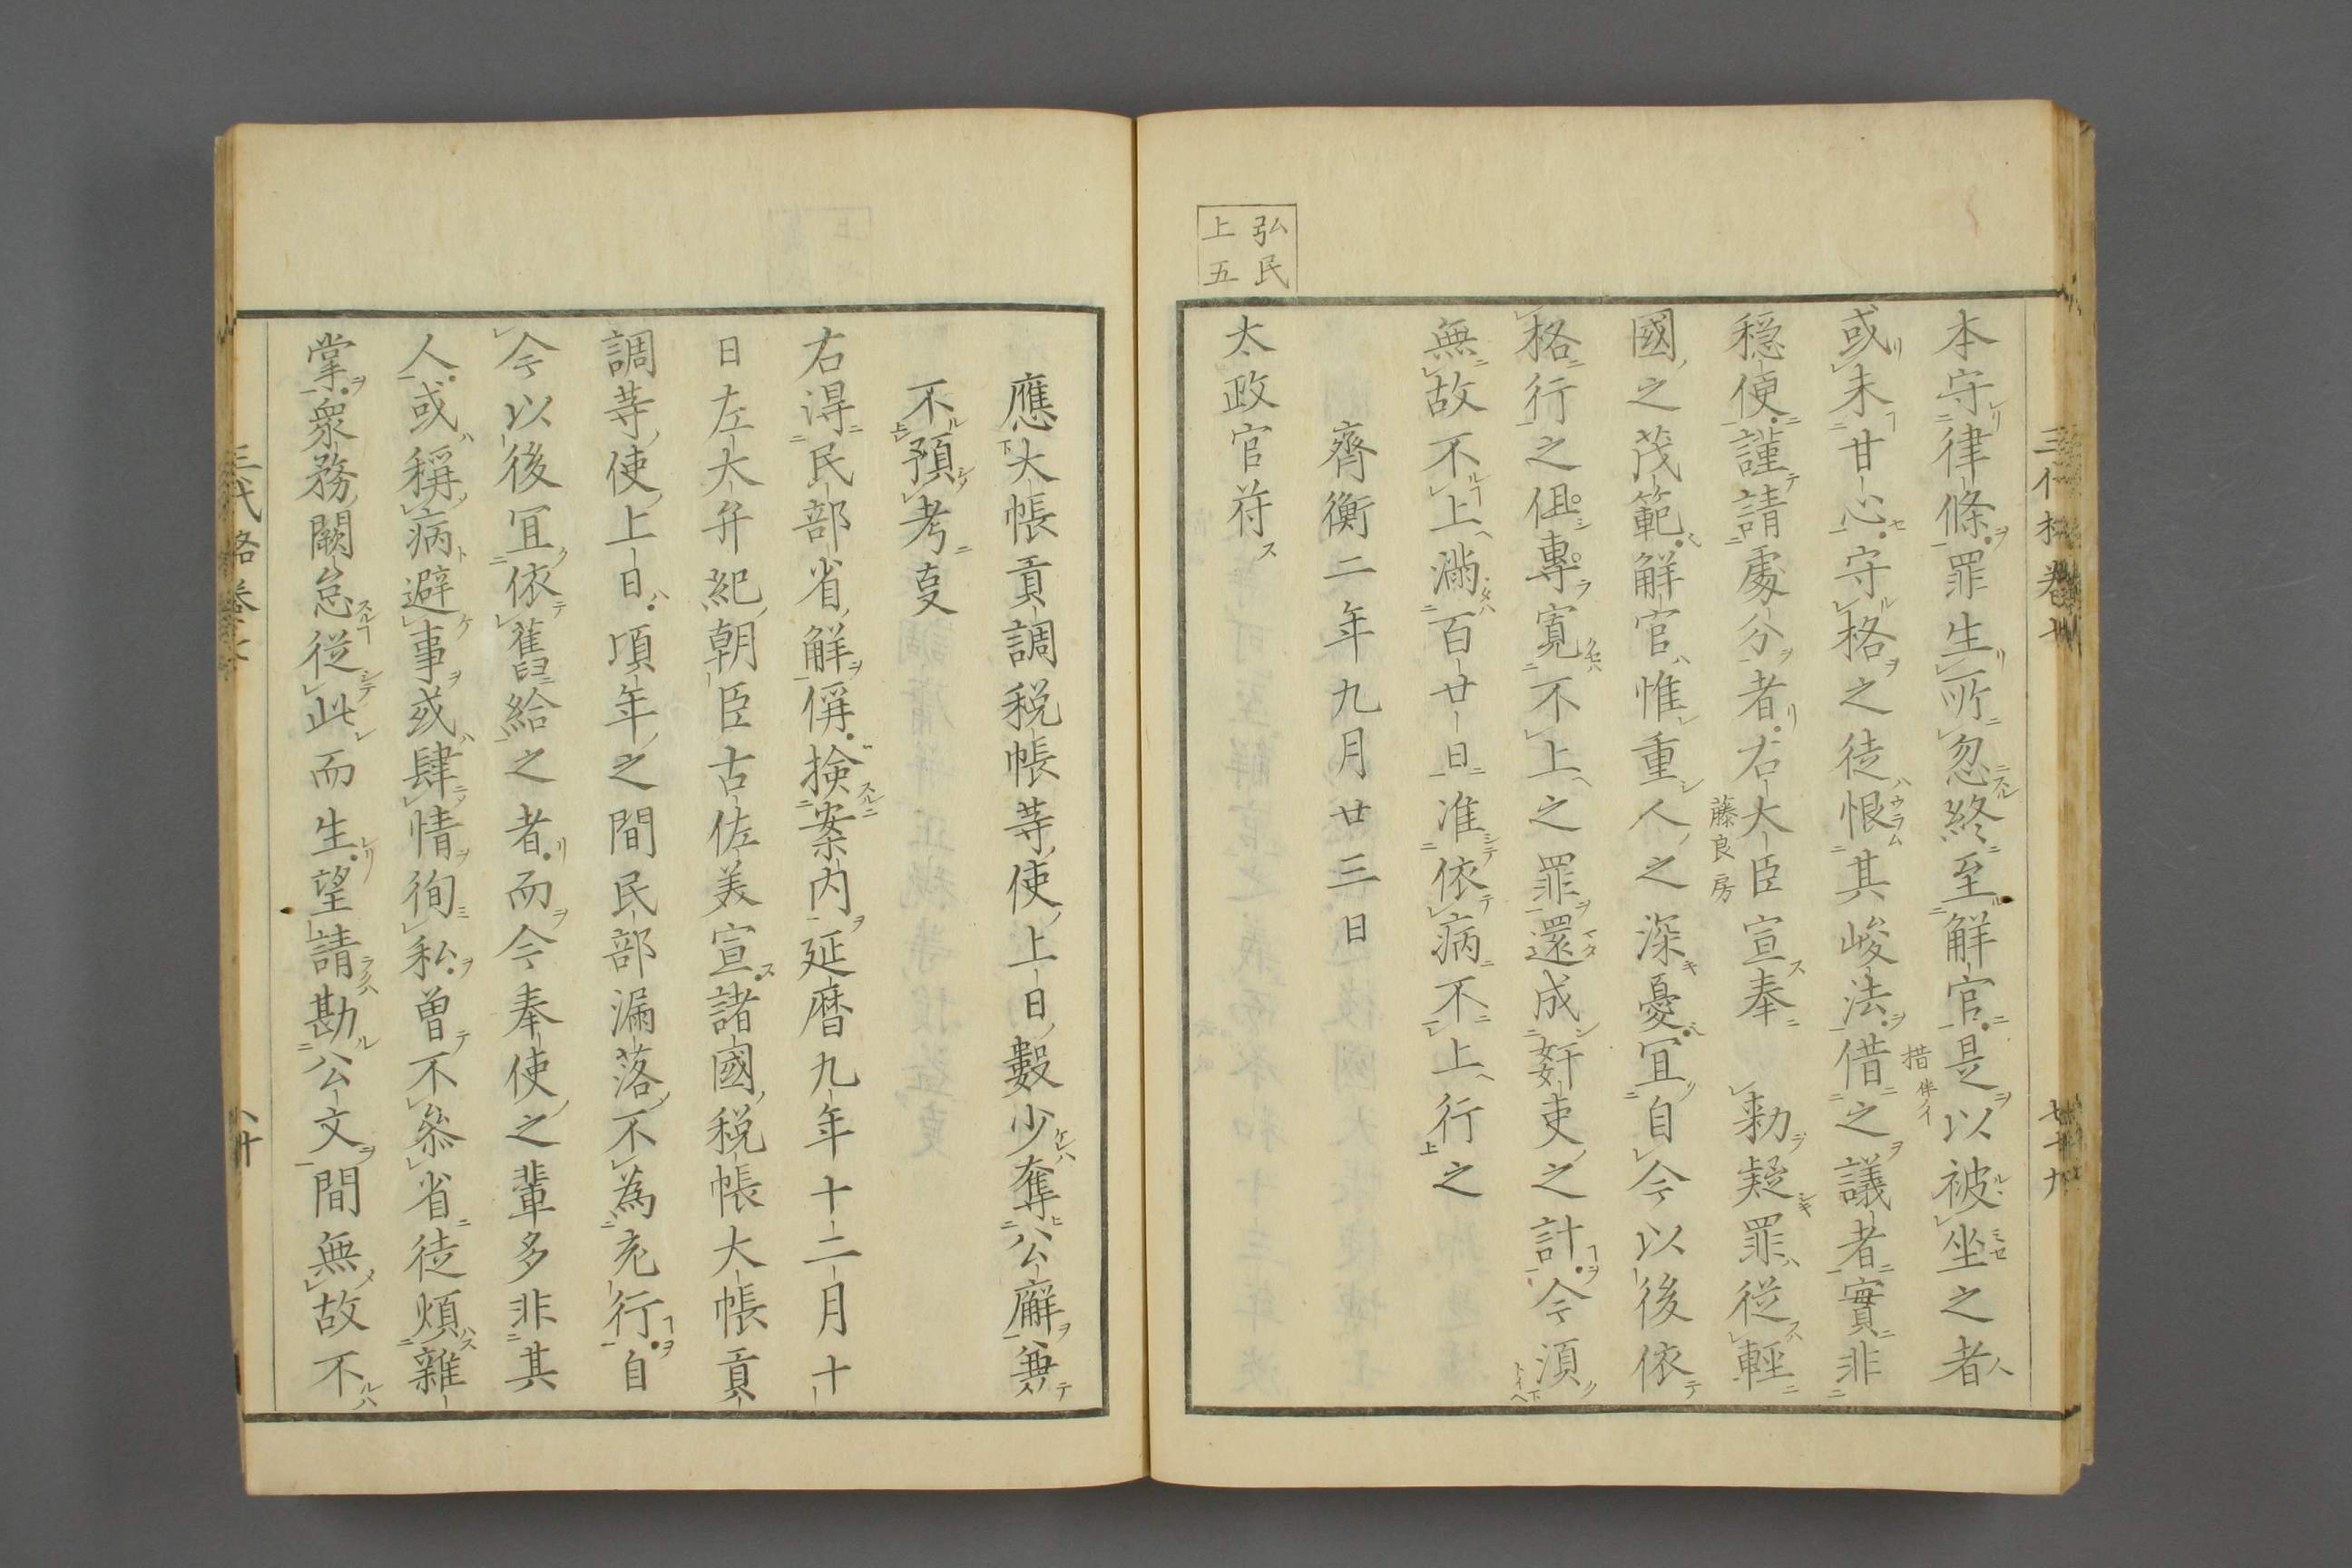 弘民
上五
本守律條罪生所忽終至解官是以被坐之者
或未甘心守格之徒恨其峻法借之議者實非
措伴イ
穏便謹請處分者右大臣宣奉　勅疑罪從輕
藤良房
國之茂範解官惟重人之深憂宜自今以後依
格行之但專寛不上之罪還成奸吏之計今須
無故不上滿百廿日准依病不上行之
齊衡二年九月廿三日
太政官符
應大帳貢調税帳等使上日數少奪公廨兼
不預考事
右得民部省解偁撿案内延暦九年十二月十
日左大弁紀朝臣古佐美宣諸國税帳大帳貢
調等使上日項年之間民部漏落不為充行自
今以後宜依舊給之者而今奉使之輩多非其
人或稱病避事或肆情徇私曽不叅省徒煩雜
掌衆務闕怠從此而生望請勘公文間無故不